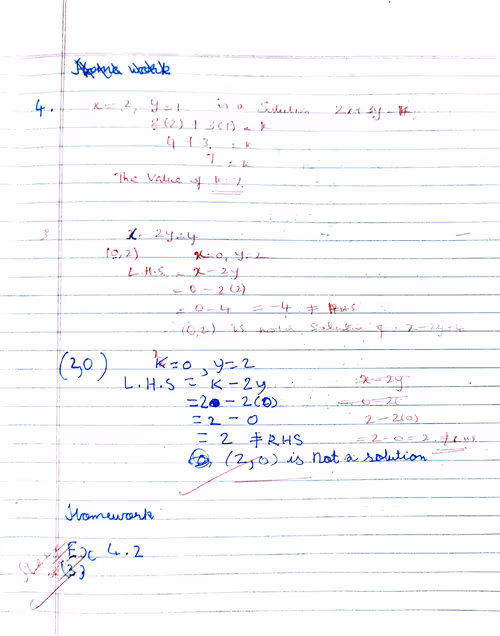 4. x = 2, y = 1 is a solution 2x + 3y = k
2(2) + 3(1) = k
4 + 3 = k
7 = k
The value of k = 7
3 x - 2y = 4
(0,2) x = 0, y = 2
L.H.S = x - 2y
= 0 - 2(2)
= 0 - 4 = -4 ≠ RHS
(0,2) is not a solution of x - 2y = 4
(2,0) x = 0, y = 2
L.H.S = x - 2y x - 2y
= 2 - 2(0)
= 2 - 0 2 - 2(0)
= 2 ≠ RHS = 2 - 0 = 2 ≠ RHS
(2,0) is not a solution
Homework
Ex 4.2
(3)